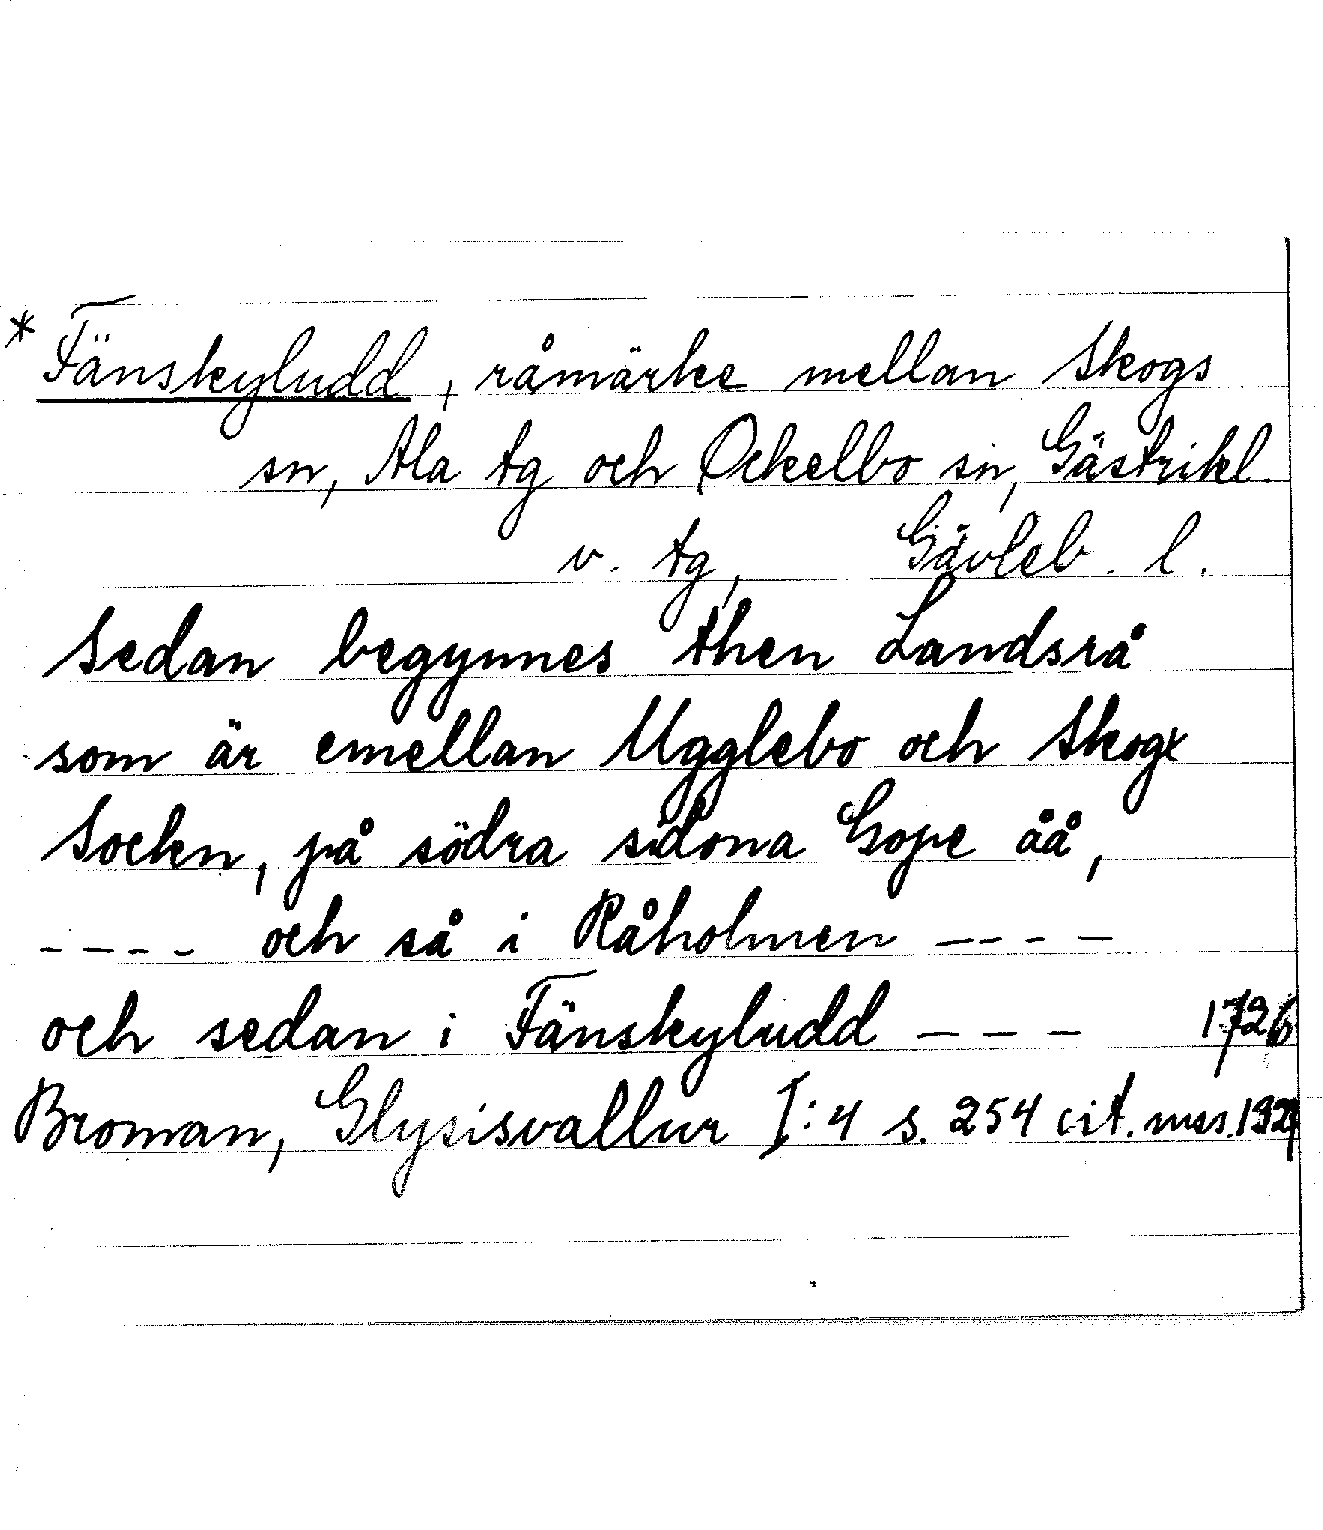 * Fänskyludd, råmärke mellan Skogs
sn, Ala tg och Ockelbo sn, Gästrikl.
v. tg, Gävleb. l.
Sedan begynnes then Landsrå
som är emellan Ugglebo och Skogx
Sockn, på södra sidona Gope åå,
---- och så i Råholmen ----
och sedan i Fänskyludd --- 1726
Broman, Glysisvallur I:4 s. 254 cit. mss. 1929